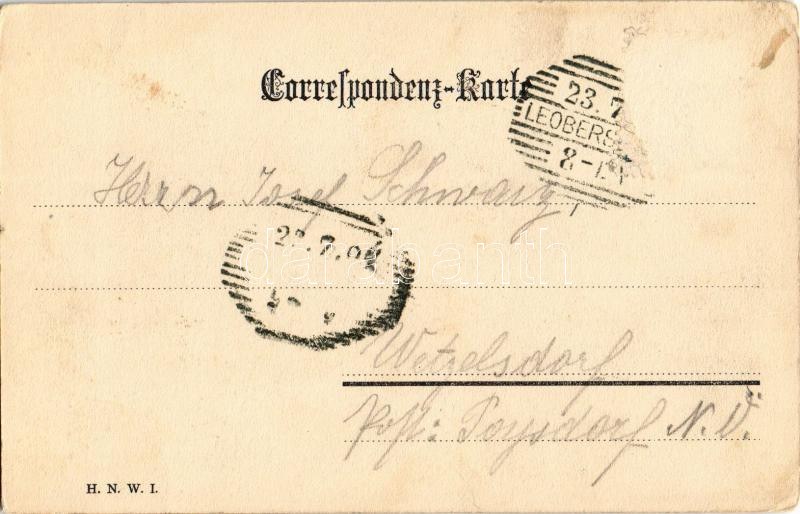 Correſpondenz-Karte
23. 7
LEOBERS
8-
Herrn Josef Schwarz,
23.7.0
darabanth
Wetzelsdorf
Post: Poysdorf N. Ö.
H. N. W. I.